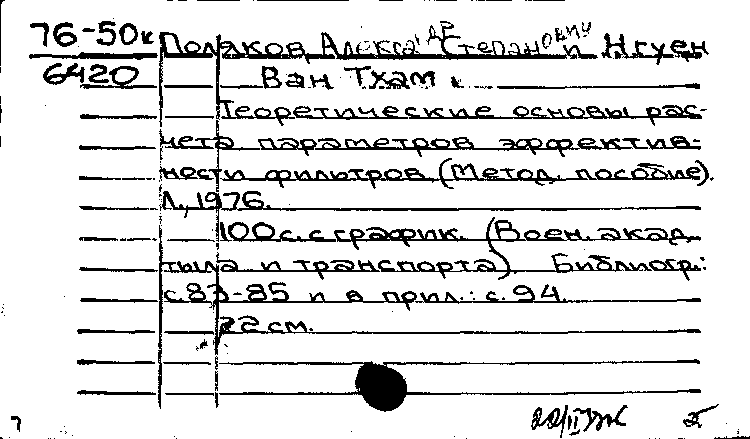 76-50к Поляков, Александр Степанович и Нгуен
6420 Ван Тхам
Теоретические основы рас-
чета параметров эффектив-
ности фильтров. (Метод. пособие).
Л., 1976.
100 с. с график. (Воен. акад.
тыла и транспорта). Библиогр.:
с. 83-85 и в прил.: с. 94.
22 см.